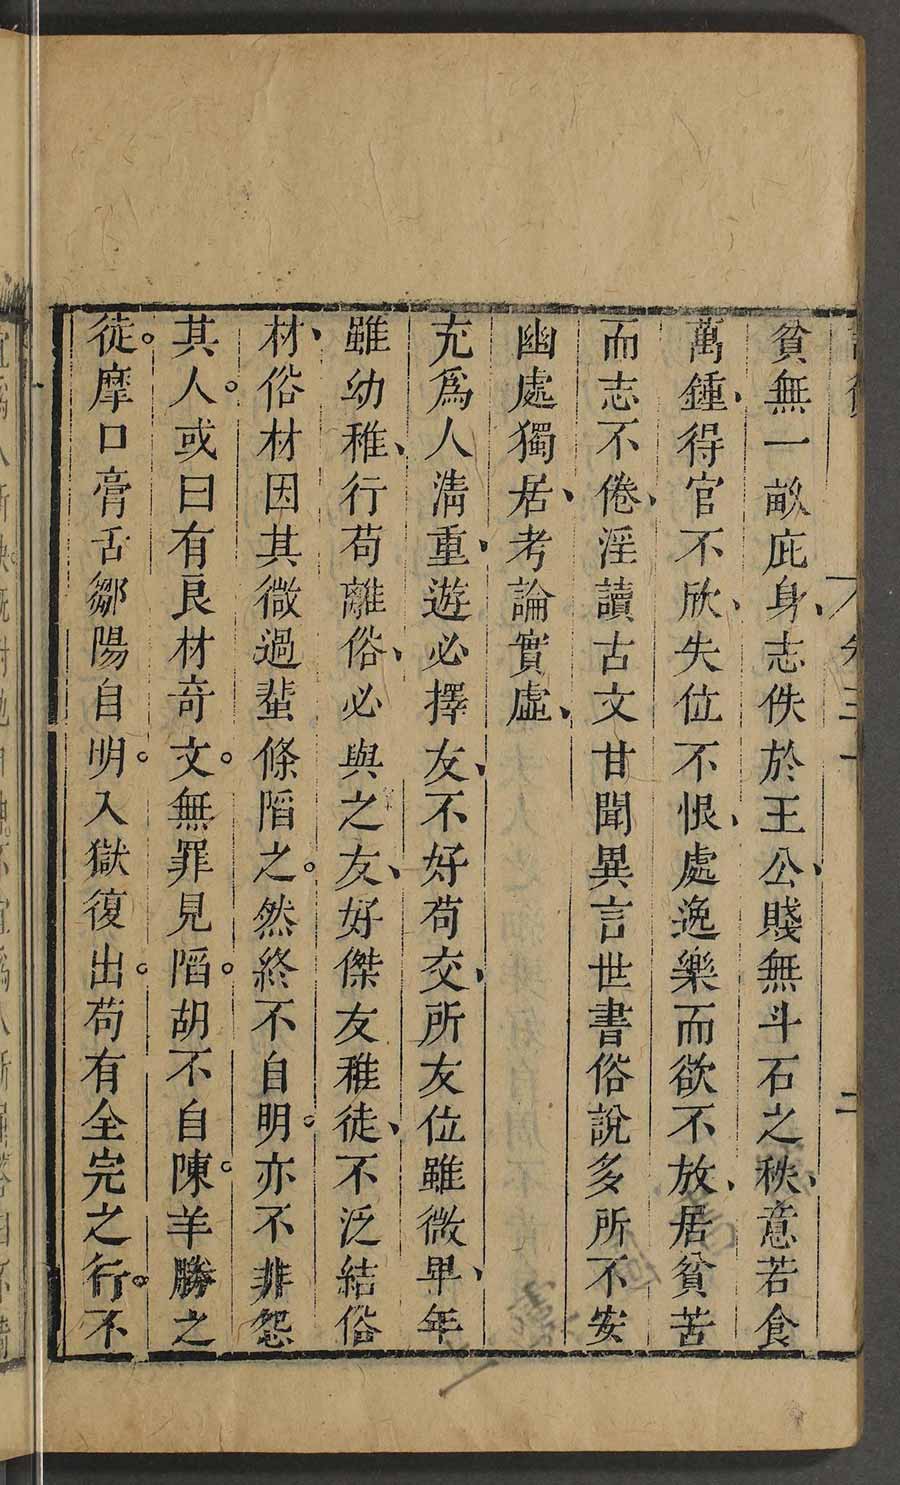 貧無一畝庇身、志佚於王公、賤無斗石之秩、意若食
萬鍾、得官不欣、失位不恨、處逸樂而欲不放、居貧苦
而志不倦、淫讀古文甘聞異言世書俗說多所不安
幽處獨居、考論實虛、
充爲人淸重、遊必擇友、不好苟交、所友位雖微卑、年
雖幼稚、行苟離俗、必與之友、好傑友雅徒、不泛結俗
材、俗材因其微過蜚條陷之。然終不自明。亦不非怨
其人。或曰有良材奇文。無罪見陷。胡不自陳。羊勝之
徒。摩口膏舌鄒陽自明。入獄復出。苟有全完之行。不